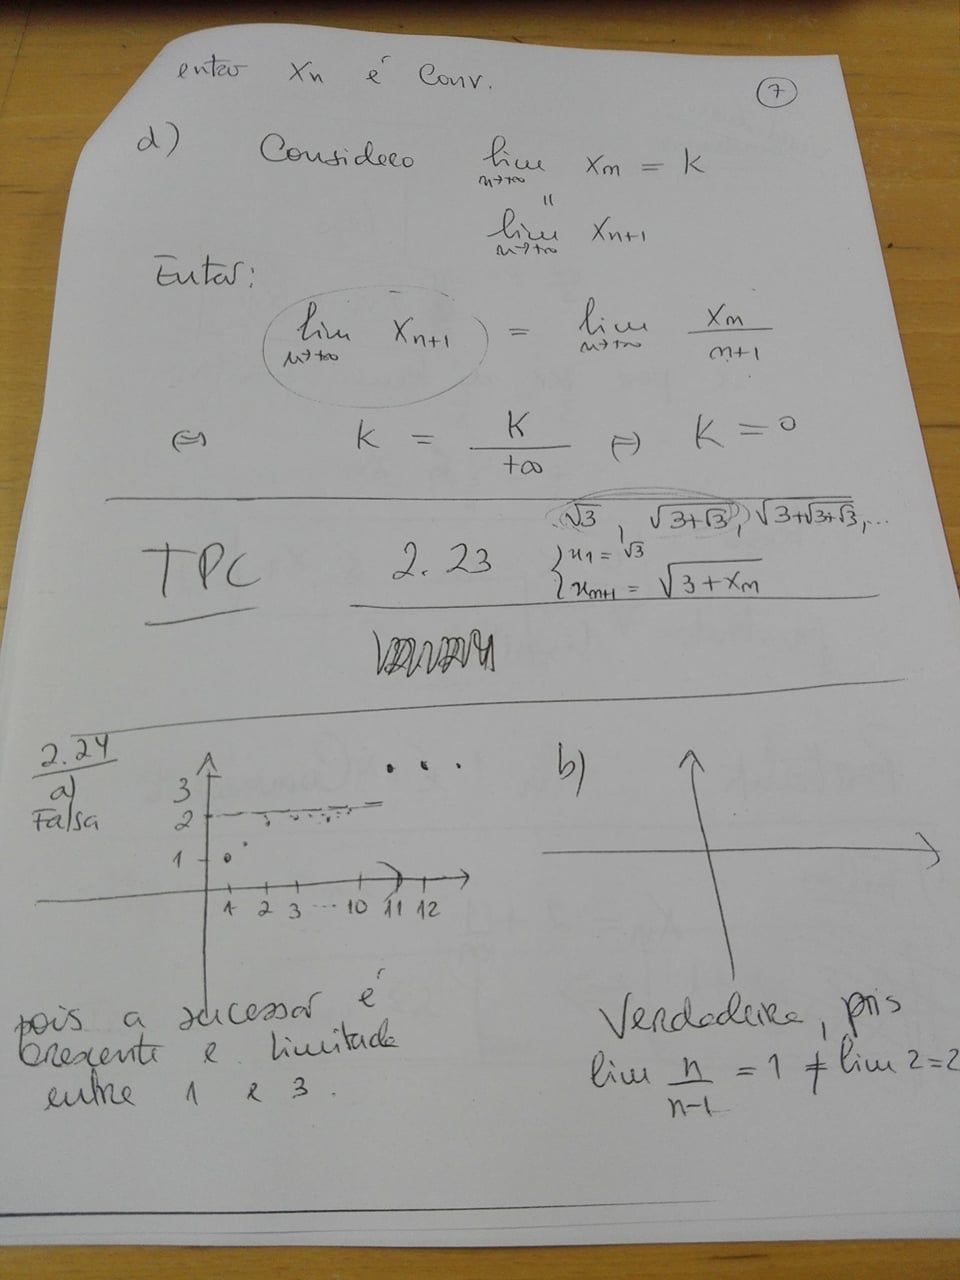 entao Xn é Conv.
7
d) Considero lim n→+∞ Xm = K
"
lim n→+∞ Xn+1
Entao:
lim n→+∞ Xn+1 = lim n→+∞ Xm / n+1
(=) K = K / +∞ (=) K = 0
√3, √3+√3, √3+√3+√3,...
TPC 2.23 { x1 = √3
xm+1 = √3+Xm
2.24
a)
Falsa
3
2
1
1 2 3 ... 10 11 12
pois a sucessao é
crescente e limitada
entre 1 e 3.
b)
Verdadeira, pois
lim n / n-1 = 1 ≠ lim 2=2